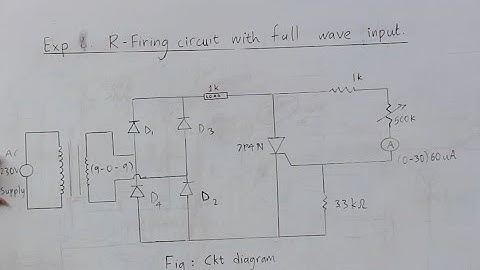 Exp 8. R-Firing circuit with full wave input.
1k
LOAD
1k
D₁
D₃
500k
AC
230V
Supply
(9-0-9)
2P4N
A
(0-30)60uA
D₄
D₂
33kΩ
Fig: Ckt diagram